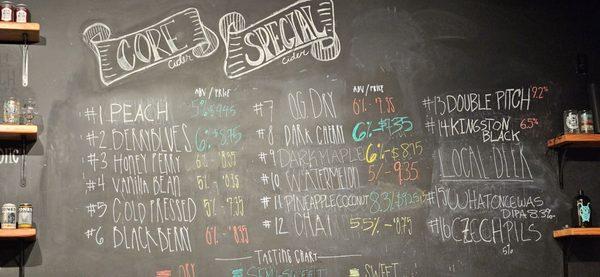 CORE
Cider
SPECIAL
Cider
ABV / PRICE
#1 PEACH 5%
#2 BERRYBLUES 6%
#3 HONEY BERRY 6% 8.35
#4 VANILLA BEAN 5% 8.35
#5 COLD PRESSED 5% 7.35
#6 BLACKBERRY 6% 8.35
ABV / PRICE
#7 OG DRY 6%
#8 DARK CHERRY 6%
#9 DARK MAPLE 6% 8.75
#10 WATERMELON 5% 9.35
#11 PINEAPPLE COCONUT 8.3%
#12 CHAI 5.5% 8.75
#13 DOUBLE PITCH 9.2%
#14 KINGSTON BLACK 6.5%
LOCAL BEER
#15 WHAT ONCE WAS
DIPA 8.3%
#16 CZECH PILS
5%
TASTING CHART
DRY SEMI-SWEET SWEET